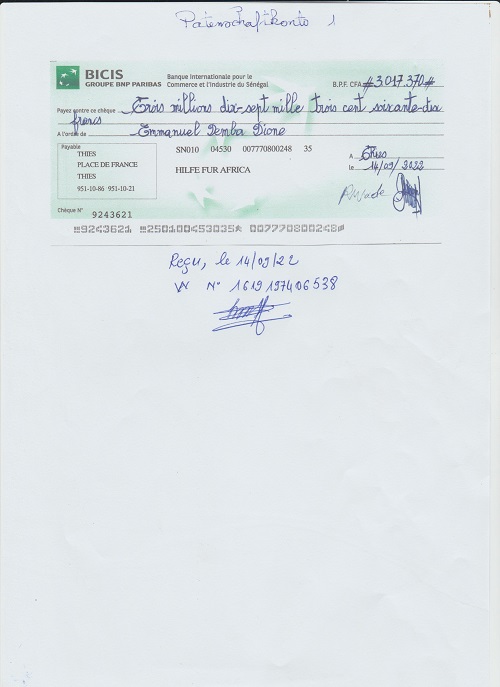 Patenschaftkonto 1
BICIS
GROUPE BNP PARIBAS
Banque Internationale pour le
Commerce et l'Industrie du Sénégal
B.P.F. CFA #3.017.370#
Payez contre ce chèque Trois millions dix-sept mille trois cent soixante-dix
francs
A l'ordre de Emmanuel Demba Dione
Payable
THIES
PLACE DE FRANCE
THIES
951-10-86 951-10-21
SN010 04530 007770800248 35
HILFE FUR AFRICA
A Thies
le 14/09/2022
Chèque N° 9243621
9243621 250100453035 007770800248
Reçu, le 14/09/22
N° 1619197406538